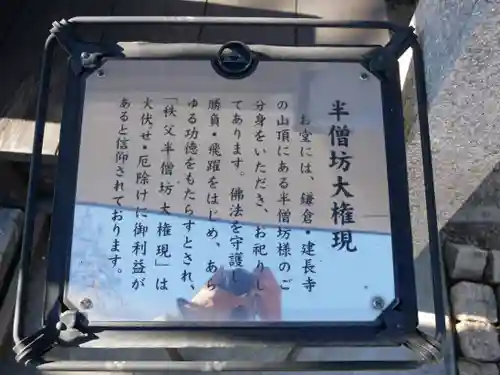 半僧坊大権現
お堂には、鎌倉・建長寺
の山頂にある半僧坊様のご
分身をいただき、お祀りし
てあります。佛法を守護し
勝負・飛躍をはじめ、あら
ゆる功徳をもたらすとされ、
「秩父半僧坊大権現」は
火伏せ・厄除けに御利益が
あると信仰されております。